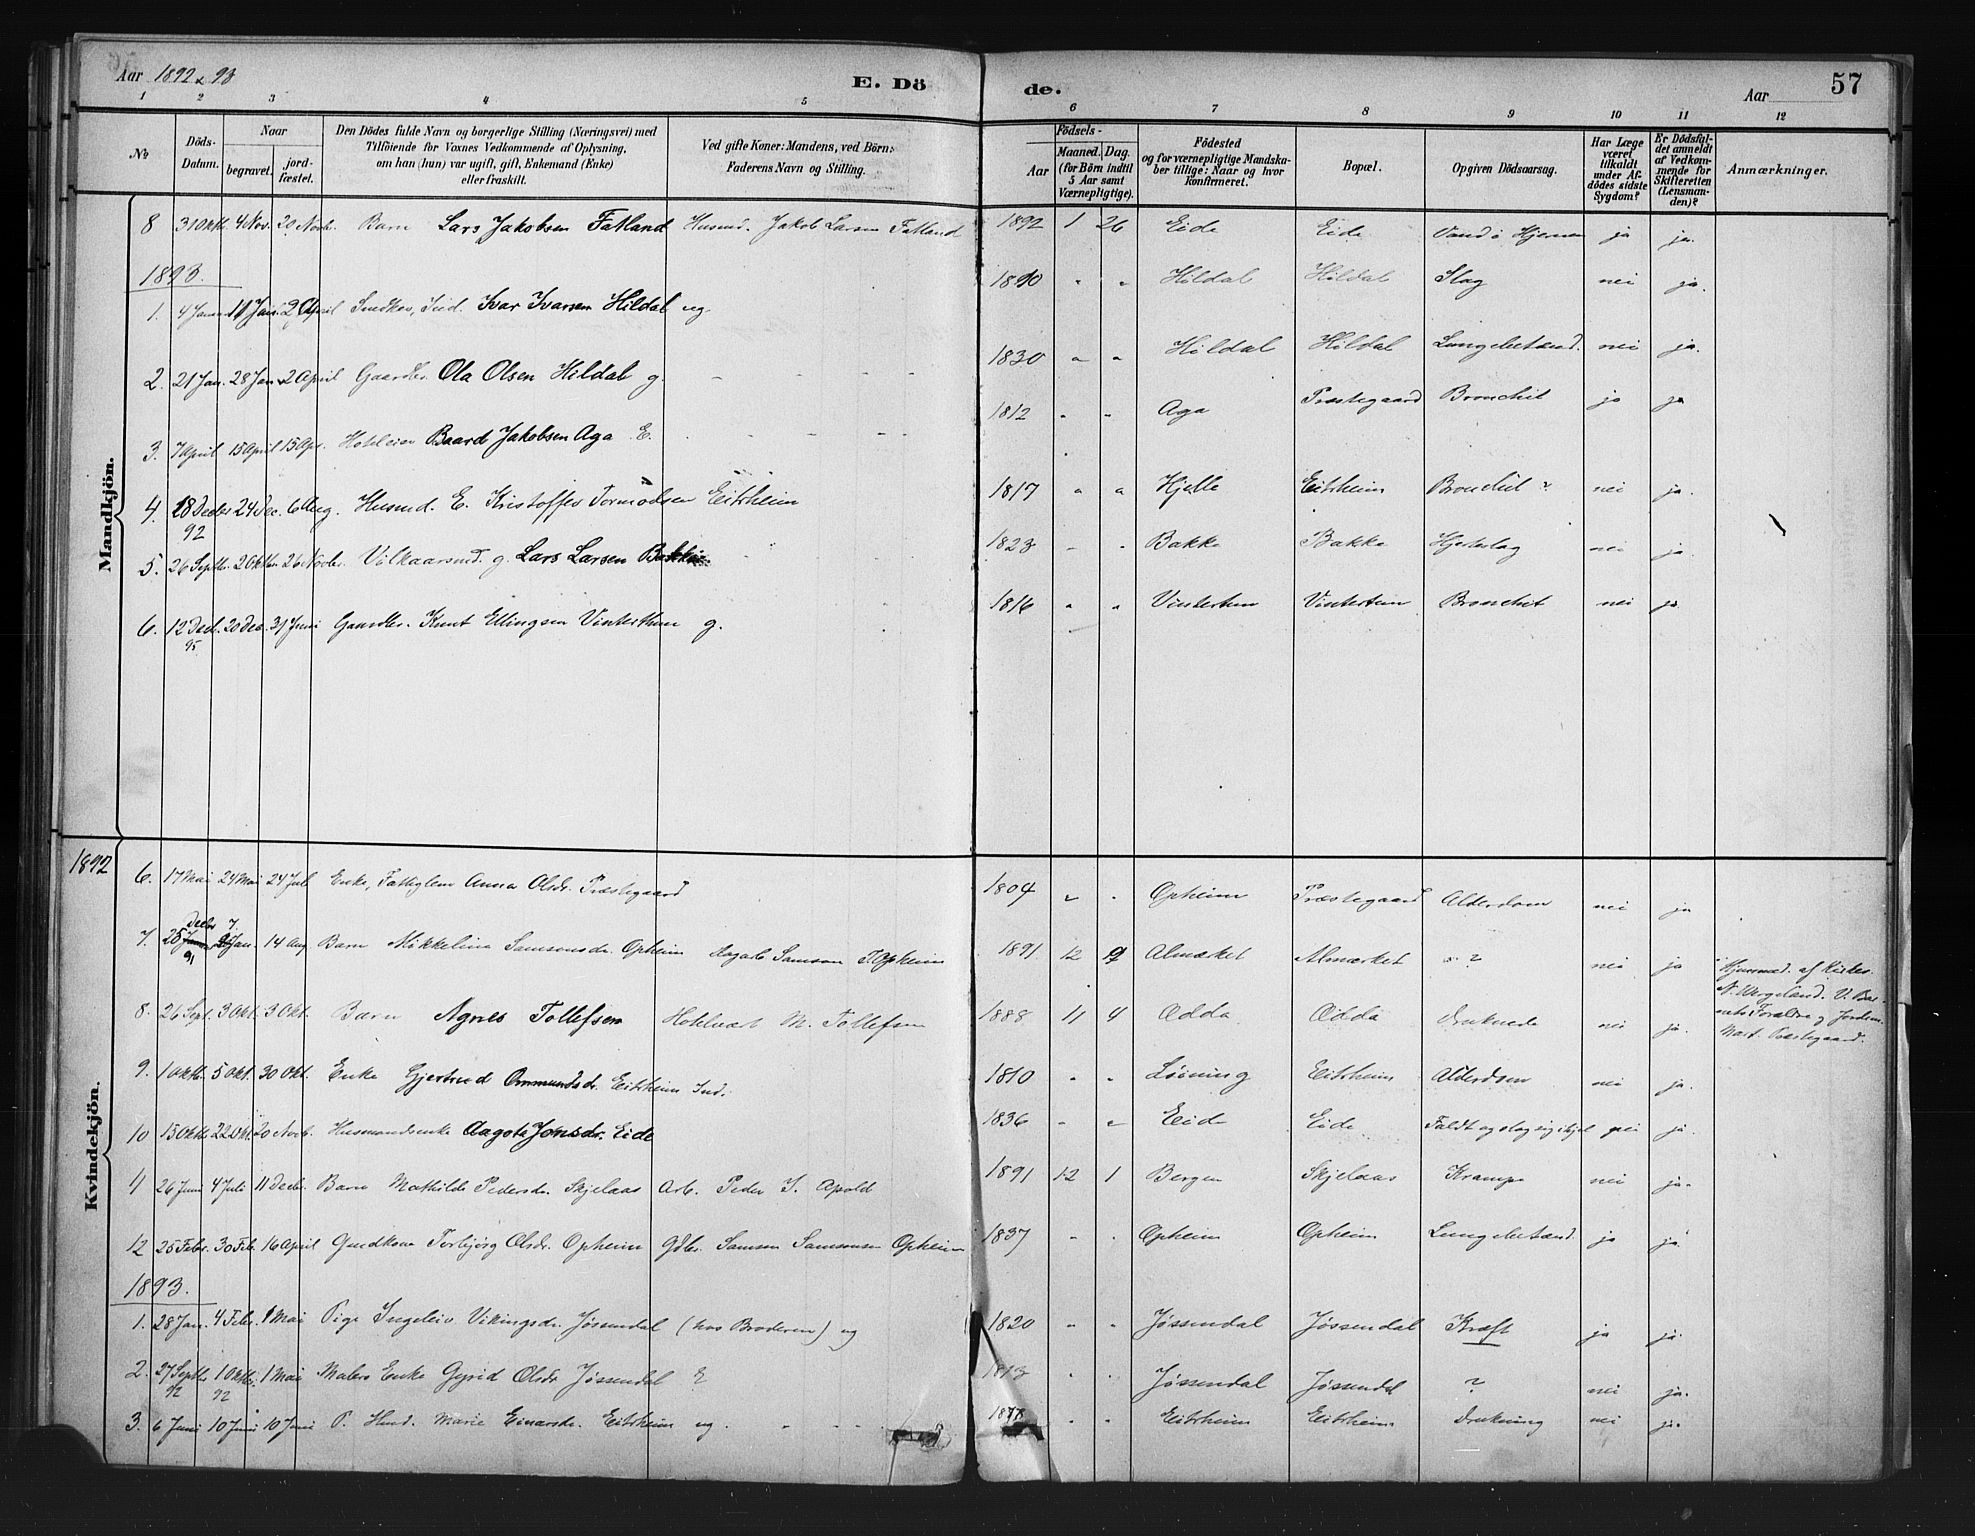 Aar 1892 & 93 E. Dö de. Aar 57
1 2 3 4 5 6 7 8 9 10 11 12
No
Döds-Datum.
Naar
begravet. jord-fæstet.
Den Dödes fulde Navn og borgerlige Stilling (Næringsvei) med
Tilföiende for Voxnes Vedkommende af Oplysning,
om han (hun) var ugift, gift, Enkemand (Enke)
eller fraskilt.
Ved gifte Koner: Mandens, ved Börn:
Faderens Navn og Stilling.
Födsels-
Aar Maaned. Dag.
(for Börn indtil
5 Aar samt
Værnepligtige).
Födested
og for værnepligtige Mandska-
ber tillige: Naar og hvor
Konfirmeret.
Bopæl.
Opgiven Dödsaarsag.
Har Læge
været
tilkaldt
under Af-
dödes sidste
Sygdom?
Er Dödsfal-
det anmeldt
af Vedkom-
mende for
Skifteretten
(Lensman-
den)?
Anmærkninger.
Mandkjön.
8 31 Oktb. 4 Nov. 20 Novbr. Barn Lars Jakobsen Fatland Husmd. Jakob Larsen Fatland 1892 1 26 Eide Eide Vand i Hjernen ja ja.
1893.
1. 4 Janr 11 Jan. 2 April Ind. Ivar Ivarsen Hildal ug. 1890 " " Hildal Hildal Slag nei ja.
2. 21 Jan. 28 Jan. 2 April Gaardbr. Ola Olsen Hildal g. 1830 " " Hildal Hildal Lungebetænd. nei ja.
3. 7 April 15 April 15 Apr. Baard Jakobsen Aga E. 1812 " " Aga Præstegaard Bronchit ja ja
4. 18 Decbr 92 24 Dec. 6 Aug. Husmd. E. Kristoffer Tormodsen Eitrheim 1817 " " Hjelle Eitrheim Bronchit ? nei ja.
5. 26 Septbr. 2 Oktbr. 26 Novbr. Vilkaarsmd. g. Lars Larsen Bakke 1823 " " Bakke Bakke Hjerteslag nei ja.
6. 12 Decb. 95 20 Dec. 31 Juni Gaardbr. Knut Ellingsen Vinterthun g. 1816 " " Vintertun Vintertun Bronchit nei ja.
Kvindekjön.
1892
6. 17 Mai 24 Mai 24 Juli Enke, Fattiglem Anna Olsdr. Præstegaard 1804 " " Opheim Præstegaard Alderdom nei ja
7. 28 Decbr 91 7 Jan. 14 Aug Barn Mikkeline Samsonsdr. Opheim Samson T. Opheim 1891 12 9 Almærket Almærket ? nei ja Hjemmed. af Kirkes.
N. Wergeland. V. Bar-
nets Forældre og Jordem.
Mart. Præstegaard.
8. 26 Sept. 3 Okt. 3 Okt. Barn Agnes Tollefsen Hotelvært M. Tollefsen 1888 11 4 Odda Odda Druknede nei ja.
9. 1 Oktb. 5 Okt. 30 Okt. Enke Gjertrud Ommundsdr. Eitrheim Ind. 1810 " " Løining Eitrheim Alderdom nei ja.
10 15 Oktb. 22 Okt. 20 Novb. Husmandsenke Aagota Jonsdr. Eide 1836 " " Eide Eide Faldt og slog sig ihjel nei ja.
11 26 Juni 4 Juli 11 Decbr. Barn Mathilde Pedersdr. Skjelaas Arb. Peder I. Apold 1891 12 1 Bergen Skjelaas Krampe nei ja.
12 25 Febr. 30 Feb. 16 April Gmdkone Torbjørg Olsdr. Opheim Gdbr. Samson Samsonsen Opheim 1837 " " Opheim Opheim Lungebetænd. ja ja
1893.
1. 28 Jan. 4 Febr. 1 Mai Pige Ingeleiv Vikingsdr. Jøssendal (hos Broderen) ug 1820 " " Jøssendal Jøssendal Kræft ja ja.
2. 27 Septbr. 92 1 Oktbr. 92 1 Mai Enke Gyrid Olsdr. Jøssendal E 1813 " " Jøssendal Jøssendal ? nei ja.
3. 6 Juni 10 Juni 10 Juni P. Marie Einarsdr. Eitrheim ug. " " Eitrheim Eitrheim Drukning nei ja.